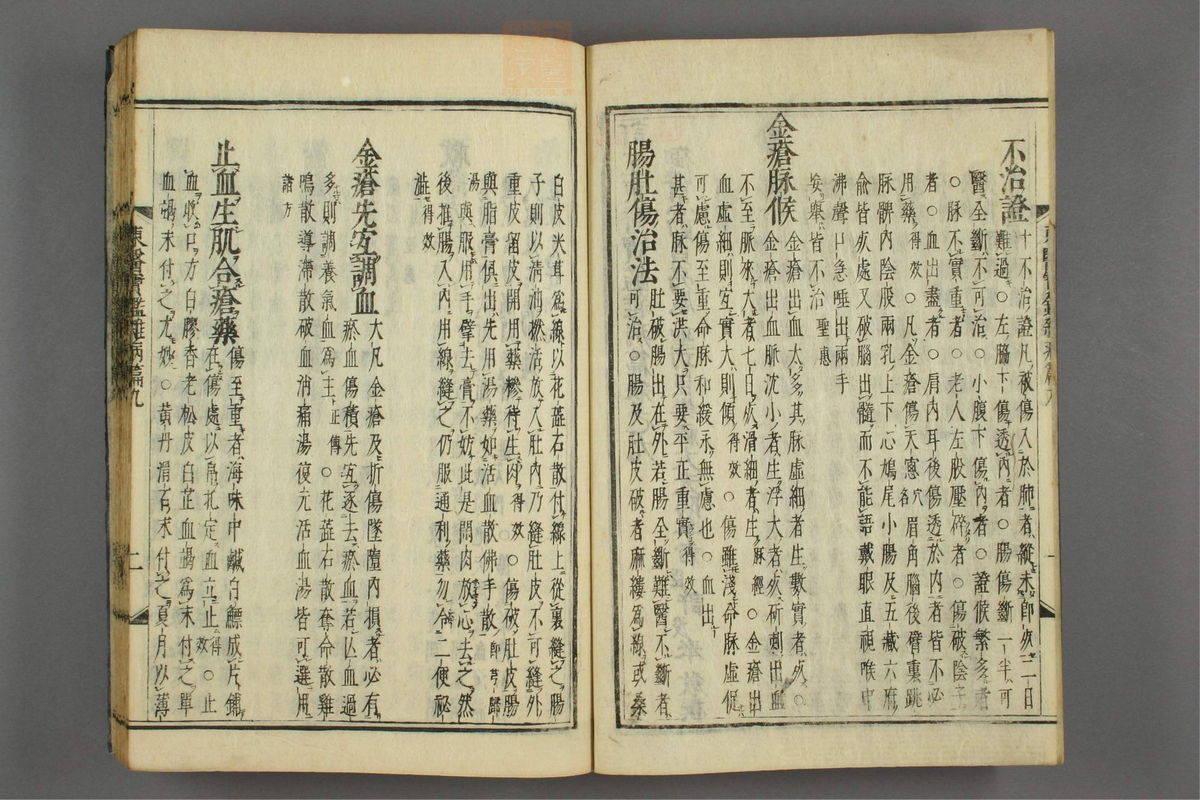 不治證
十不治證凡被傷入於肺者縱未卽死二七日
難過○左脇下傷透內者○腸傷斷一半可
醫全斷不可治○小腹下傷內者○證候繁多者
○脉不實重者○老人左股壓碎者○傷破陰子
者○血出盡者○肩內耳後傷透於內者皆不必
用藥得效○凡金瘡傷天窓穴名眉角腦後臂裏跳
脉髀內陰股兩乳上下心鳩尾小腸及五藏六府
兪皆死處又破腦出髓而不能語戴眼直視喉中
沸聲口急唾出兩手
妄擧皆不治聖惠
金瘡脉候
金瘡出血太多其脉虛細者生數實者死○
金瘡出血脉沈小者生浮大者死○斫刺出血
不至脉來大者七日死滑細者生脉經○金瘡出
血虛細則宜實大則傾得效○傷雖淺命脉虛促
可慮傷至重命脉和緩永無慮也○血出
甚者脉不要洪大只要平正重實得效
腸肚傷治法
肚破腸出在外若腸全斷難醫不斷者
可治○腸及肚皮破者麻縷爲線或桑
白皮尖茸爲線以花蘂石散付線上從裏縫之腸
子則以淸油撚活放入肚內乃縫肚皮不可縫外
重皮留皮開用藥糝待生肉得效○傷破肚皮腸
與脂膏俱出先用湯藥如活血散佛手散卽芎歸
湯與服用手擘去膏不妨此是閑肉放心去之然
後推腸入內用線縫之仍服通利藥勿令二便秘
澁得效
金瘡先宜調血
大凡金瘡及折傷墜墮內損者必有
瘀血傷積先宜逐去瘀血若亡血過
多則調養氣血爲主正傳○花蘂石散奪命散雞
鳴散導滯散破血消痛湯復元活血湯皆可選用
諸方
止血生肌合瘡藥
傷至重者海味中鹹白鰾成片鋪
在傷處以帛扎定血立止得效○止
血收口方白膠香老松皮白芷血竭爲末付之單
血竭末付之尤妙○黃丹滑石末付之夏月以薄
東醫寶鑑雜病篇九